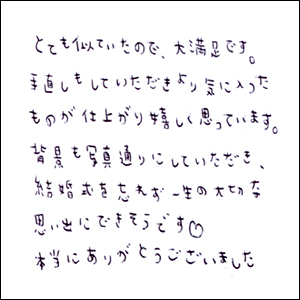 とても似ていたので、大満足です。
手直しもしていただきより気に入った
ものが仕上がり嬉しく思っています。
背景も写真通りにしていただき、
結婚式を忘れず一生の大切な
思い出にできそうです♡
本当にありがとうございました